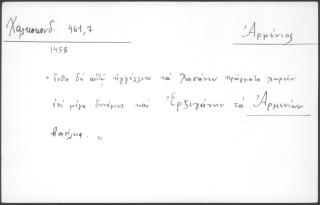 Χαλκοκονδ. 461,7
Ἀρμένιος
1458
" ἔνθα δὴ αὐτῷ ἠγγέλλετο τὰ Χασάνεω πράγματα χωρεῖν
ἐπὶ μέγα δυνάμεως καὶ Ἐρζιγάνην τὰ Ἀρμενίων
βασίλεια. "